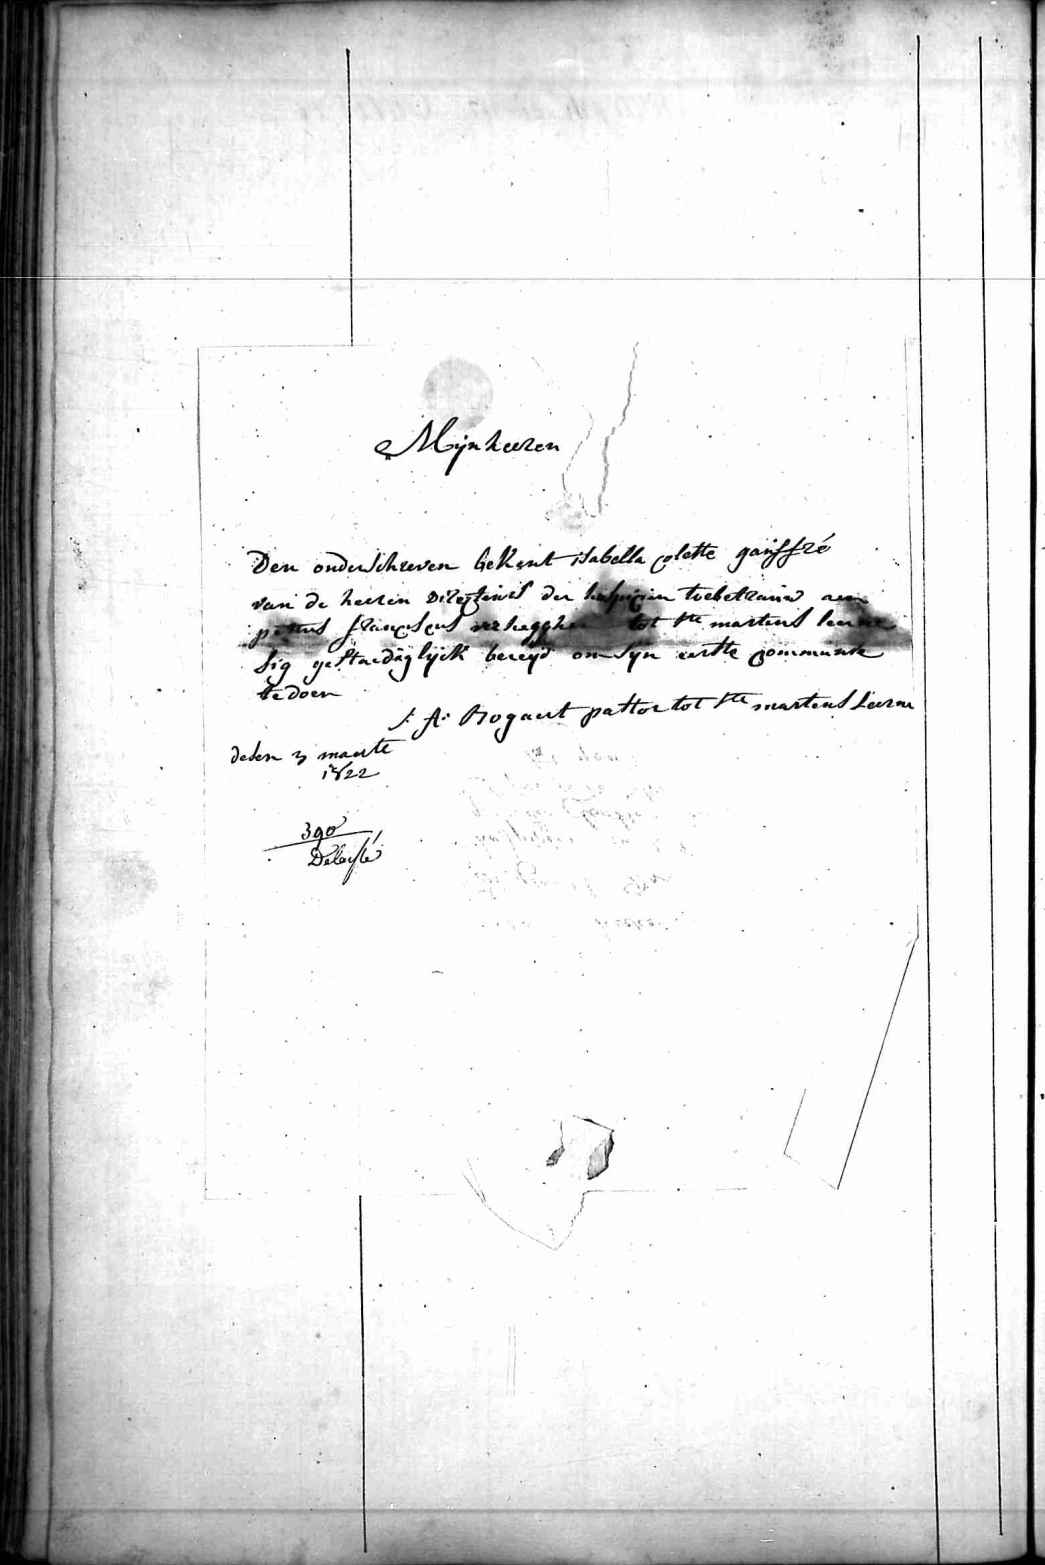 Mijnheeren
Den onderschreven bekent isabella colette gaüffré
van de heeren Directeurs der hospicien toebetrauw aen
petrus franciscus verhegghen tot ste martens leerne
sig gestaedig lyck bereyd om syn eerste communie
te doen
j: A: Bogaert pastor tot ste martens Leerne
desen 3 maerte
1822
390